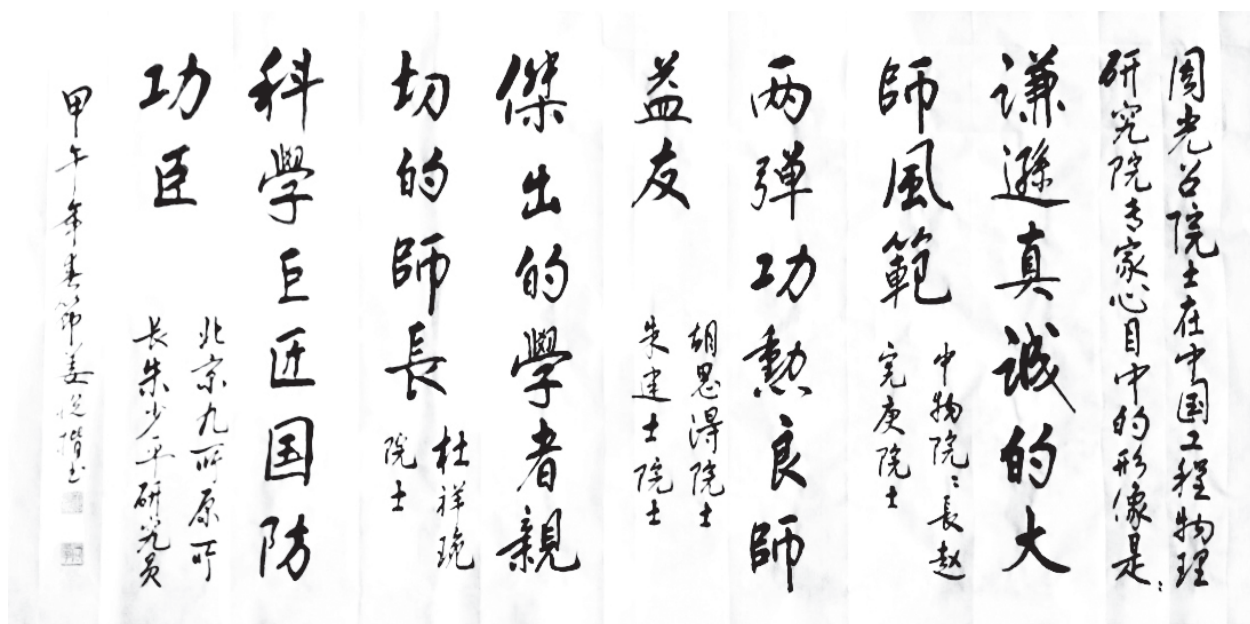 周光召院士在中国工程物理
研究院专家心目中的形像是：
谦遜真誠的大
師風範
中物院院長赵
宪庚院士
两弹功勲良師
益友
胡思得院士
朱建士院士
傑出的學者親
切的師長
杜祥琬
院士
科學巨匠国防
功臣
北京九所原所
长朱少平研究员
甲午年春節姜悦楷书